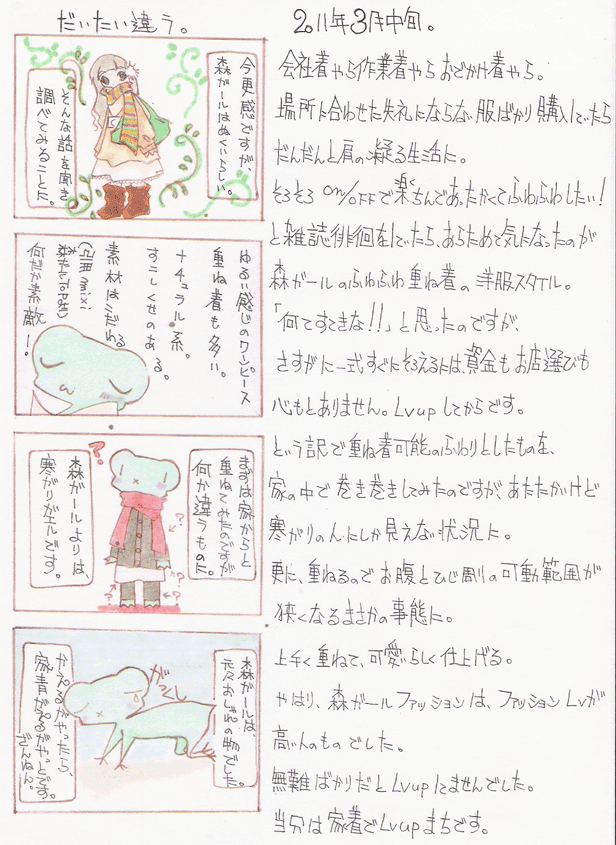 だいたい違う。
今更感ですが、
森ガールはぬくいらしい。
そんな話を聞き
調べてみることに。
ゆるい感じのワンピース
重ね着も多い。
ナチュラル系。
すこしくせのある。
素材はこだわる
(引用mixi
何だか素敵ー!
まずは家からと
重ねてみたのですが
何が違うものに。
?
森ガールよりは、
寒がりガエルです。
森ガールは、
元々おしゃれの物でした。
がくし
かえるがやったら、
家青がえるがやっとです。
ざんねん。
2011年3月中旬。
会社着やら作業着やらおでかけ着やら。
場所に合わせた失礼にならない服ばかり購入していたら
だんだんと肩の凝る生活に。
そろそろON/OFFで楽ちんであったかくてふわふわしたい!
と雑誌徘徊をしていたら、あらためて気になったのが
森ガールのふわふわ重ね着の洋服スタイル。
「何てすてきな!!」と思ったのですが、
さすがに一式すぐにそろえるには、資金もお店選びも
心もとありません。Lvupしてからです。
という訳で重ね着可能のふわりとしたものを、
家の中で巻き巻きしてみたのですが、あたたかいけど
寒がりの人にしか見えない状況に。
更に、重ねるのでお腹とひじ周りの可動範囲が
狭くなるまさかの事態に。
上手く重ねて、可愛らしく仕上げる。
やはり、森ガールファッションは、ファッションLvが
高い人のものでした。
無難ばかりだとLvupしてませんでした。
当分は家着でLvupまちです。